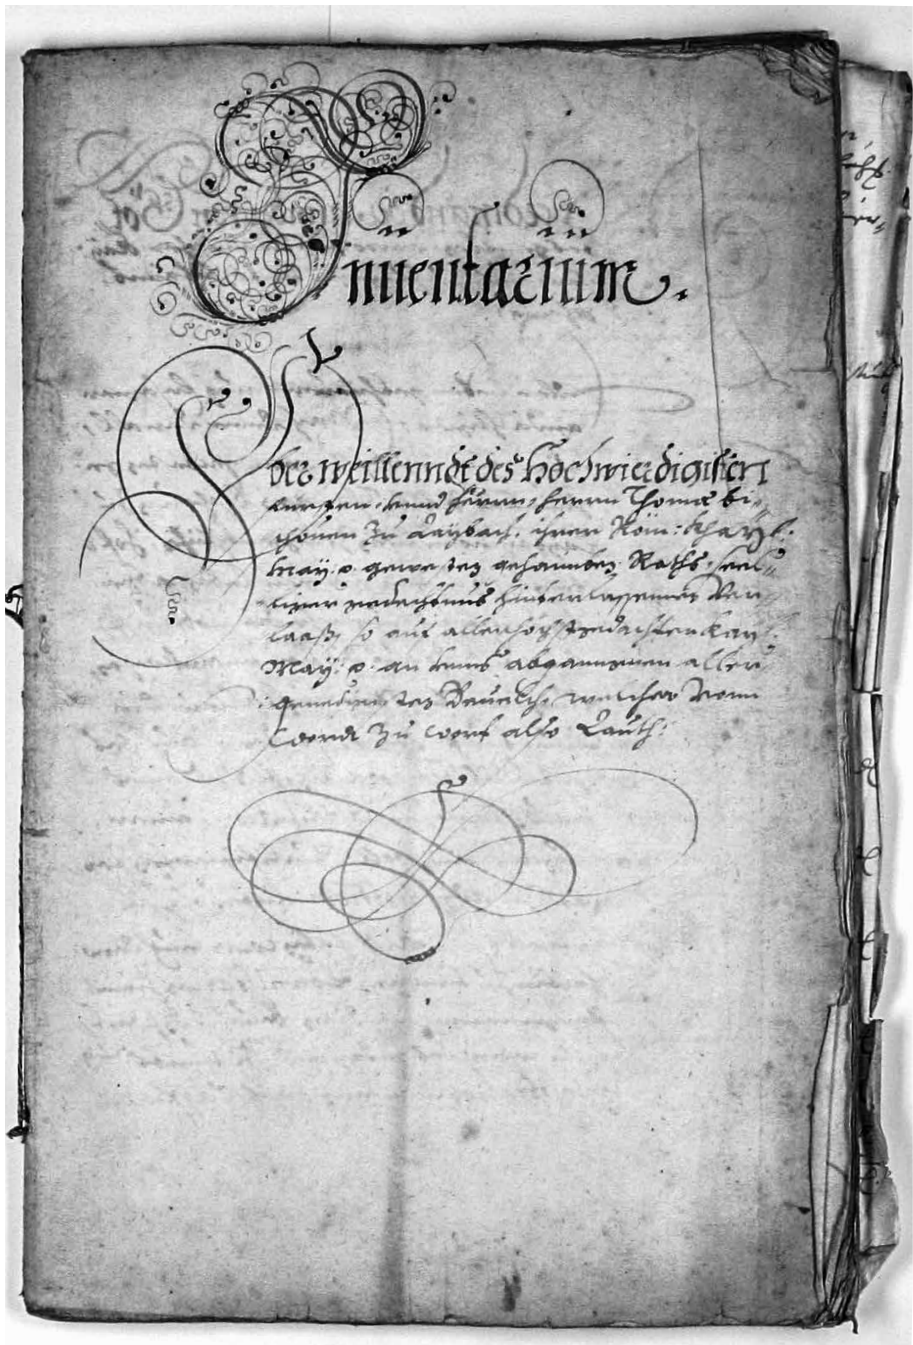 Inuentarium.
Vber weillenndt des Hochwierdigisten
Fürsten vnnd Herrn, Herrn Thomæ bi-
schouen zu Laybach, ihrer Röm: Khayl:
May: gewesten gehaimben Raths, seel-
liger gedechtnus hinterlassenen Ver-
laaß, so auf allerhöchstgedachter Kay:
May: an vnns abganngenen aller
genedigisten Beuelch, welcher vonn
Wordt zu Wort also Lauth: